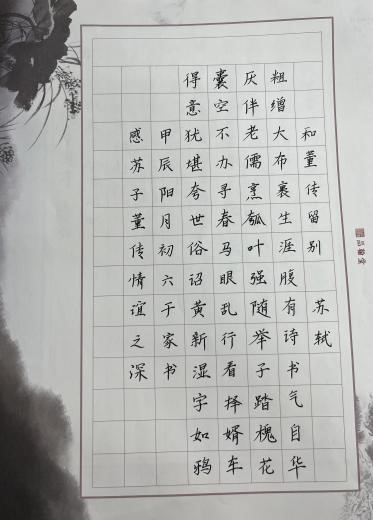 和董传留别 苏轼
粗缯大布裹生涯腹有诗书气自华
厌伴老儒烹瓠叶强随举子踏槐花
囊空不办寻春马眼乱行看择婿车
得意犹堪夸世俗诏黄新湿字如鸦
甲辰阳月初六于家书
感苏子董传情谊之深